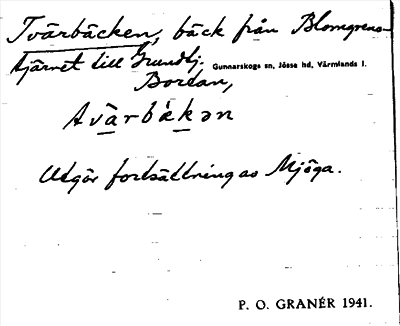 Tvärbäcken, bäck från Blomgrens-
tjärnet till Grundtj.
Gunnarskogs sn, Jösse hd, Värmlands l.
Bordan,
tvärbäkən
Utgör fortsättning av Mjöga.
P. O. GRANÉR 1941.